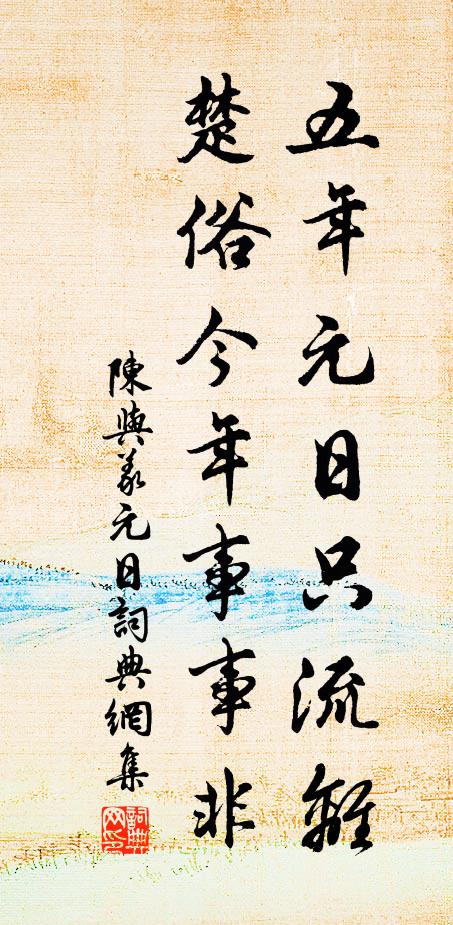 五年元日只流離
楚俗今年事事非
陳與義元日詞典網集
詞典
网印